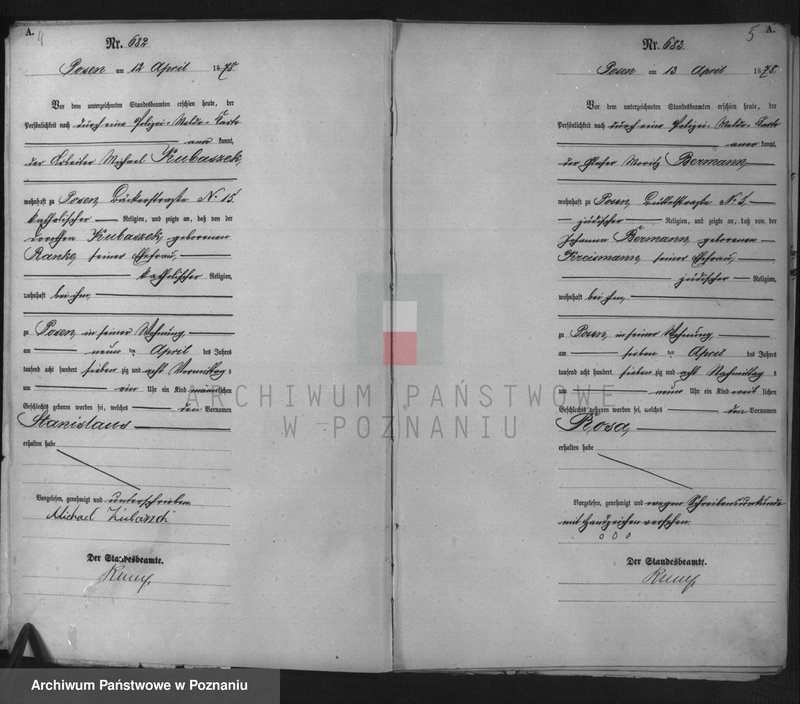 A.
4
Nr. 682
Posen am 12 April 1878
Vor dem unterzeichneten Standesbeamten erschien heute, der
Persönlichkeit nach durch eine Polizei-Melde-Karte
aner kannt,
der Arbeiter Michael Kubaszek
wohnhaft zu Posen, Bäckerstraße No 15.
katholischer Religion, und zeigte an, daß von der
Dorothea Kubaszek, geborenen
Ranke, seiner Ehefrau,
katholischer Religion,
wohnhaft bei ihm,
zu Posen, in seiner Wohnung
am neun ten April des Jahres
tausend acht hundert sieben zig und acht Vormittag s
um ein Uhr ein Kind männlichen
Geschlechts geboren worden sei, welches den Vornamen
Stanislaus
erhalten habe
Vorgelesen, genehmigt und unterschrieben
Michael
Der Standesbeamte.
A.
5
Nr. 683
Posen am 13 April 1878
Vor dem unterzeichneten Standesbeamten erschien heute, der
Persönlichkeit nach durch eine Polizei-Melde-Karte
aner kannt,
der Glaser Moritz Bermann,
wohnhaft zu Posen, No 5.
jüdischer Religion, und zeigte an, daß von der
Johanna Bermann, geborenen
Kreismann, seiner Ehefrau,
jüdischer Religion,
wohnhaft bei ihm,
zu Posen, in seiner Wohnung
am sieben ten April des Jahres
tausend acht hundert sieben zig und acht Nachmittag s
um neun Uhr ein Kind weib lichen
Geschlechts geboren worden sei, welches den Vornamen
Rosa,
erhalten habe
Vorgelesen, genehmigt und wegen Schreibensunkunde
mit Handzeichen versehen.
o o o
Der Standesbeamte.
ARCHIWUM PAŃSTWOWE
W POZNANIU
Archiwum Państwowe w Poznaniu